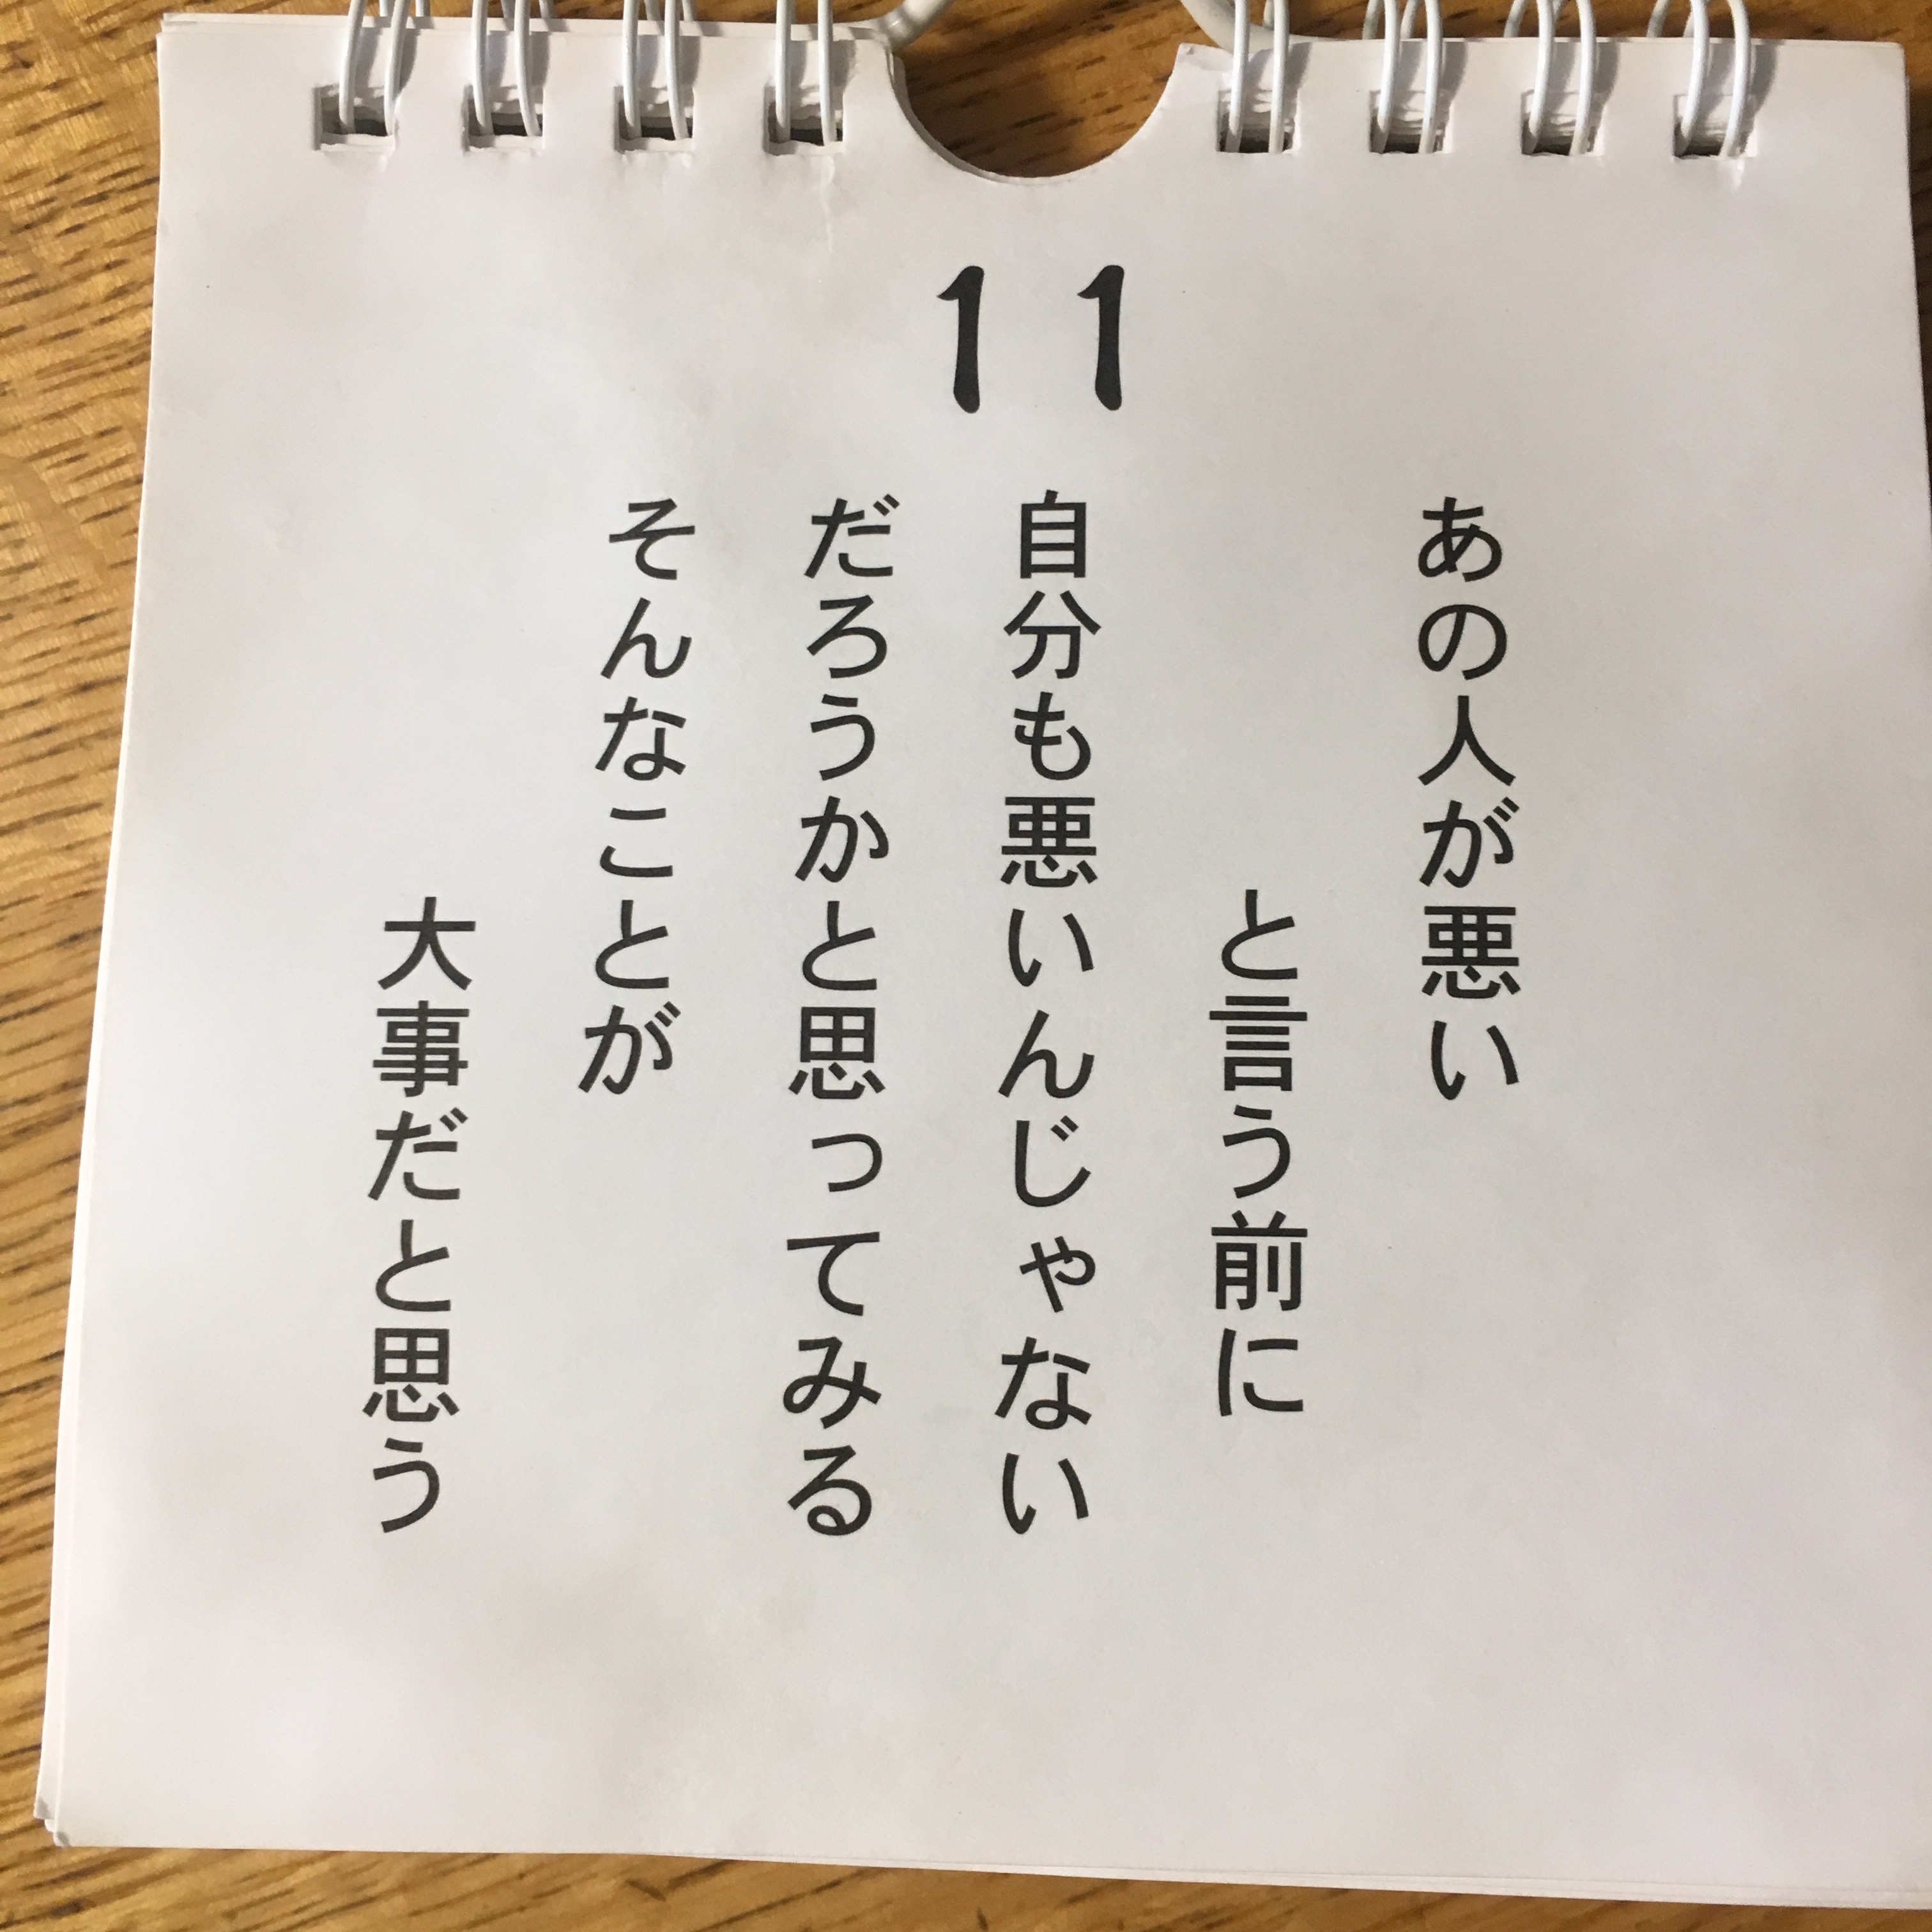 11
あの人が悪い
と言う前に
自分も悪いんじゃない
だろうかと思ってみる
そんなことが
大事だと思う